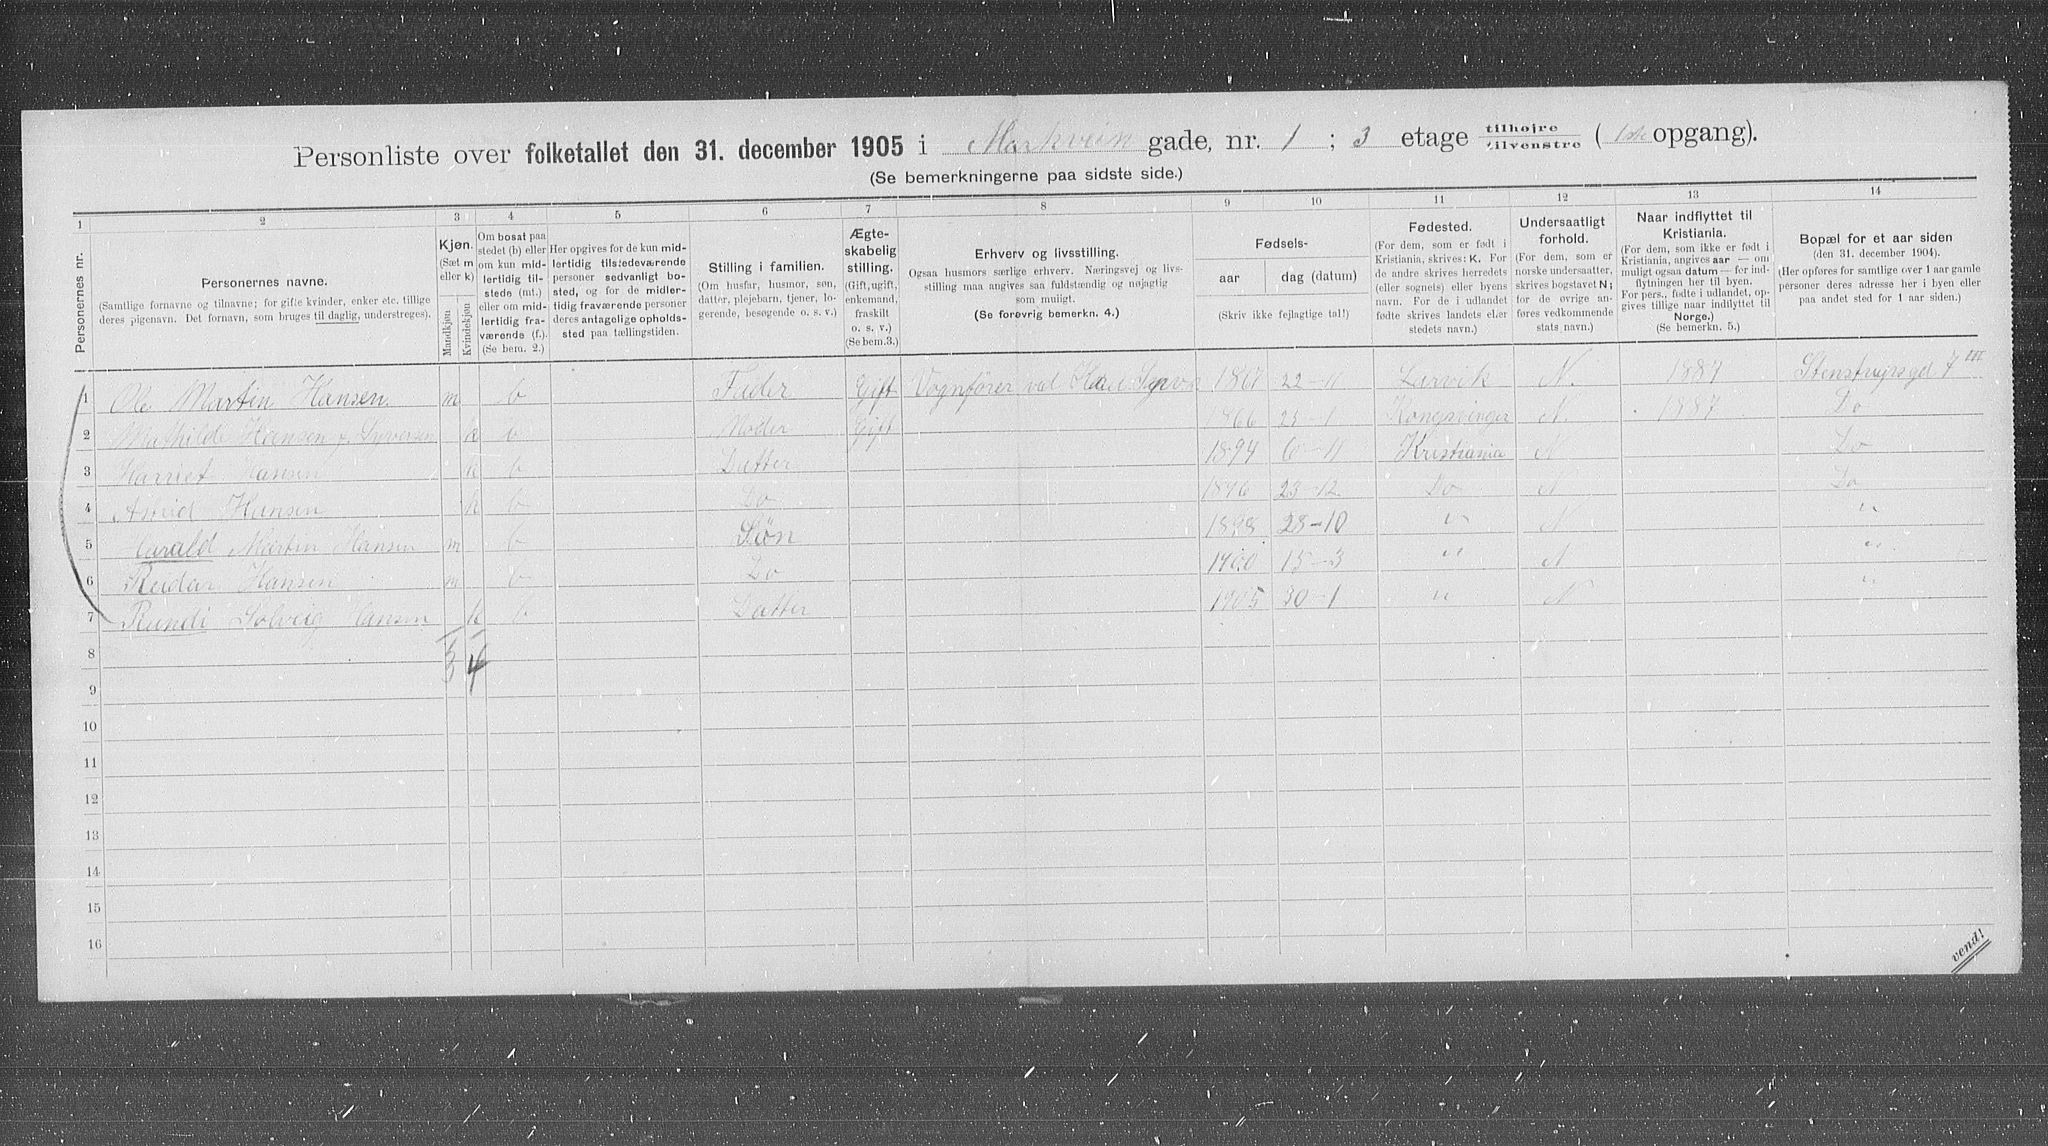 Personliste over folketallet den 31. december 1905 i Markvein gade, nr. 1 ; 3 etage tilhøjre tilvenstre ( 1ste opgang).
(Se bemerkningerne paa sidste side.)
1 2 3 4 5 6 7 8 9 10 11 12 13 14
Personernes nr.
Personernes navne.
(Samtlige fornavne og tilnavne; for gifte kvinder, enker etc. tillige
deres pigenavn. Det fornavn, som bruges til daglig, understreges).
Kjøn.
(Sæt m
eller k)
Mandkjøn
Kvindekjøn
Om bosat paa
stedet (b) eller
om kun mid-
lertidig til-
stede (mt.)
eller om mid-
lertidig fra-
værende (f.).
(Se bem. 2.)
Her opgives for de kun mid-
lertidig tilstedeværende
personer sedvanligt bo-
sted, og for de midler-
tidig fraværende personer
deres antagelige opholds-
sted paa tællingstiden.
Stilling i familien.
(Om husfar, husmor, søn,
datter, plejebarn, tjener, lo-
gerende, besøgende o. s. v.)
Ægte-
skabelig
stilling.
(Gift, ugift,
enkemand,
fraskilt
o. s. v.)
(Se bem.3.)
Erhverv og livsstilling.
Ogsaa husmors særlige erhverv. Næringsvej og livs-
stilling maa angives saa fuldstændig og nøjagtig
som muligt.
(Se forøvrig bemerkn. 4.)
Fødsels-
aar dag (datum)
(Skriv ikke fejlagtige tal!)
Fødested.
(For dem, som er født i
Kristiania, skrives: K. For
de andre skrives herredets
(eller sognets) eller byens
navn. For de i udlandet
fødte skrives landets eller
stedets navn.)
Undersaatligt
forhold.
(For dem, som er
norske undersaatter,
skrives bogstavet N;
for de øvrige an-
føres vedkommende
stats navn.)
Naar indflyttet til
Kristiania.
(For dem, som ikke er født i
Kristiania, angives aar — om
muligt ogsaa datum — for ind-
flytningen her til byen.
For pers., fødte i udlandet, op-
gives tillige naar indflyttet til
Norge.)
(Se bemerkn. 5.)
Bopæl for et aar siden
(den 31. december 1904).
(Her opføres for samtlige over 1 aar gamle
personer deres adresse her i byen eller
paa andet sted for 1 aar siden.)
1 Ole Martin Hansen. m b Fader Gift Vognfører ved 1867 22-11 Larvik N. 1887 Stenstrupsgd 7 III
2 Mathilde Hansen f. Syversen k b Moder Gift 1866 23-1 Kongsvinger N. 1887 Do
3 Harriet Hansen k b Datter 1894 6-11 Kristiania N Do
4 Astrid Hansen k b Do 1896 23-12 Do N Do
5 Harald Martin Hansen m b Søn 1898 28-10 " N "
6 Reidar Hansen m b Do 1900 15-3 " N "
7 Rundi Solveig Hansen k b Datter 1905 30-1 " N "
8 3 4
9
10
11
12
13
14
15
16
vend!